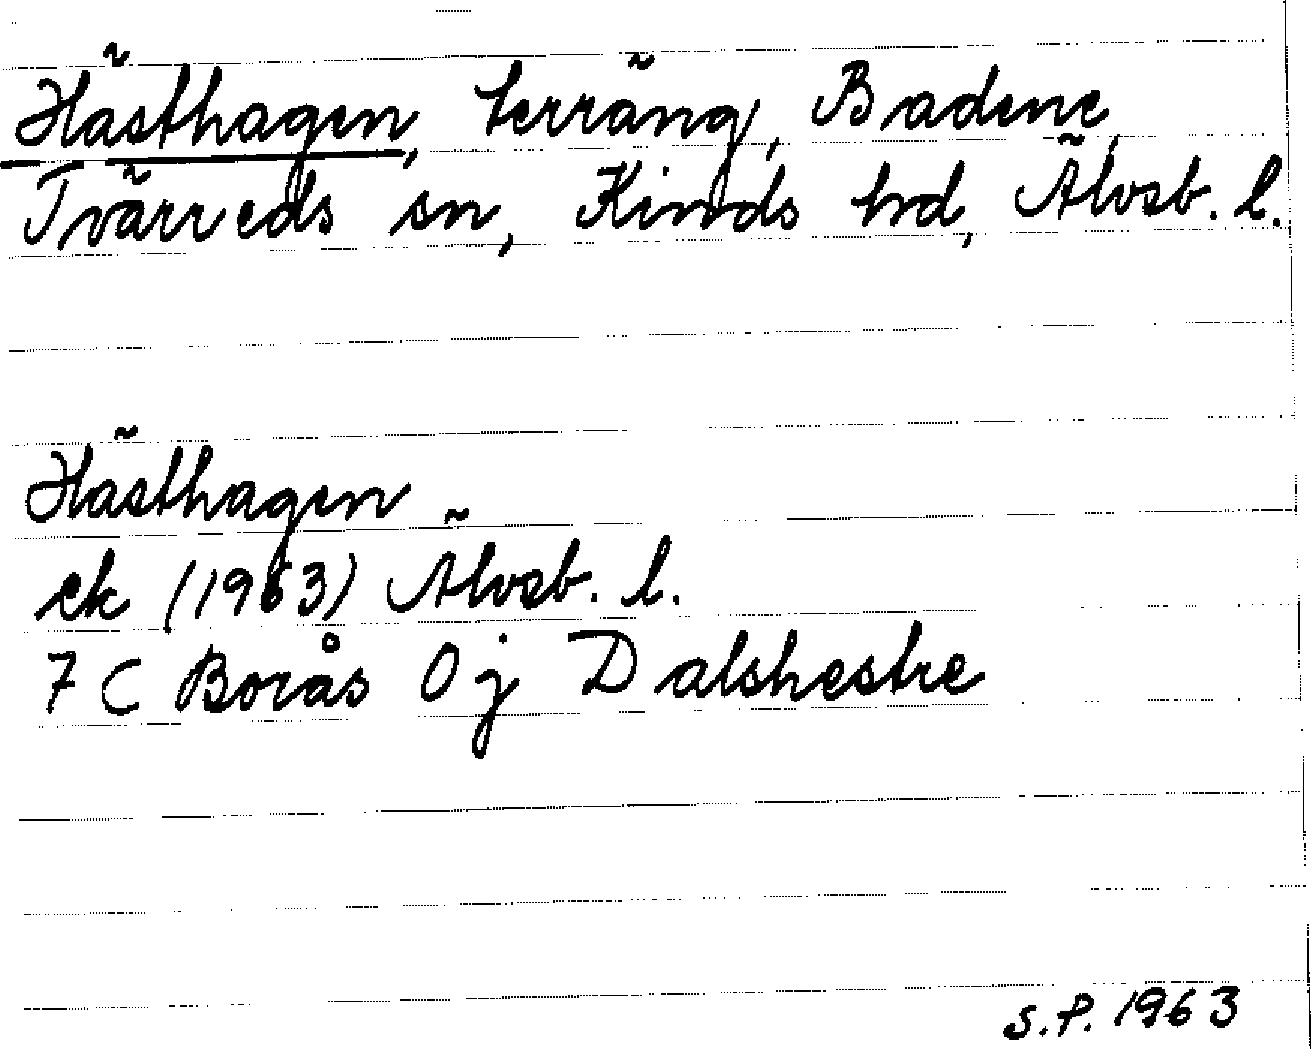 Hästhagen, terräng, Badene,
Tvärreds sn, Kinds hd, Älvsb. l.
Hästhagen
ek (1963) Älvsb. l.
7 C Borås 0 j Dalshestre
S.P. 1963